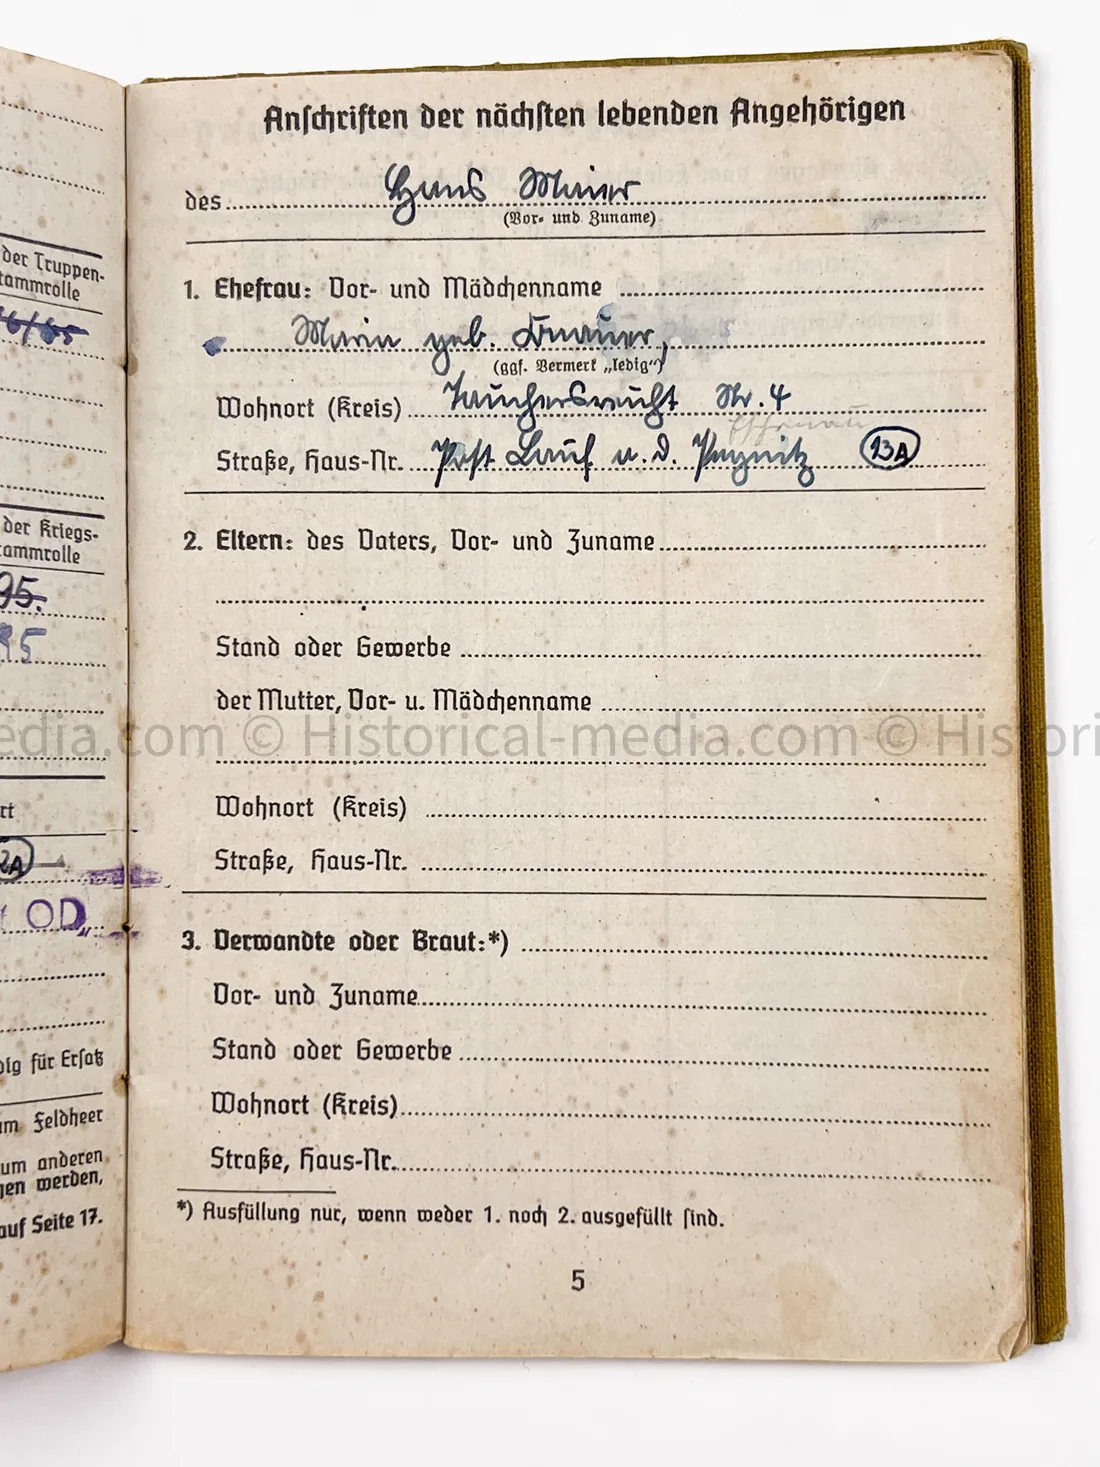 der Truppen-
tammrolle
der Kriegs-
tammrolle
95.
95
rt
2A
OD„
dig für Ersatz
um Feldheer
um anderen
en werden,
auf Seite 17.
Anschriften der nächsten lebenden Angehörigen
des Hans Maier
(Vor- und Zuname)
1. Ehefrau: Vor- und Mädchenname
Maria geb. Knauer,
(ggf. Vermerk „ledig“)
Wohnort (Kreis) Tauchersreuth Nr. 4
Straße, Haus-Nr. Post Lauf a. d. Pegnitz 13A
2. Eltern: des Vaters, Vor- und Zuname
Stand oder Gewerbe
der Mutter, Vor- u. Mädchenname
edia.com © Historical-media.com © Histori
Wohnort (Kreis)
Straße, Haus-Nr.
3. Verwandte oder Braut:*)
Vor- und Zuname
Stand oder Gewerbe
Wohnort (Kreis)
Straße, Haus-Nr.
*) Ausfüllung nur, wenn weder 1. noch 2. ausgefüllt sind.
5